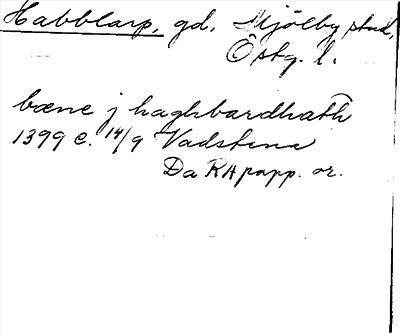 Habblarp, gd. Mjölby stad,
Östg. l.
bæne j haghbardhath
1399 e. 14/9 Vadstena
Da RA papp. or.